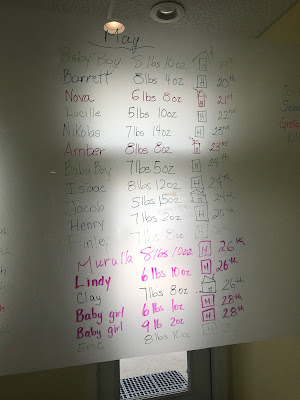 May
Baby Boy 8 lbs 10 oz H 19th
Barrett 8 lbs 4 oz H 20th
Nova 6 lbs 8 oz H 21st
Lucille 5 lbs 10 oz H 22nd
Nikolas 7 lbs 14 oz H 23rd
Amber 8 lbs 8 oz H 23rd
Baby Boy 7 lbs 5 oz H 24th
Isaac 8 lbs 12 oz H 24th
Jacob 5 lbs 15 oz H 24th
Henry 7 lbs 2 oz H 25th
Finley 7 lbs 8 oz H 26th
Murulla 8 lbs 10 oz H 26th
Lindy 6 lbs 10 oz H 26th
Clay 7 lbs 8 oz H 26th
Baby girl 6 lbs 1 oz H 28th
Baby girl 9 lb 2 oz H 28th
Eric 8 lbs 10 oz